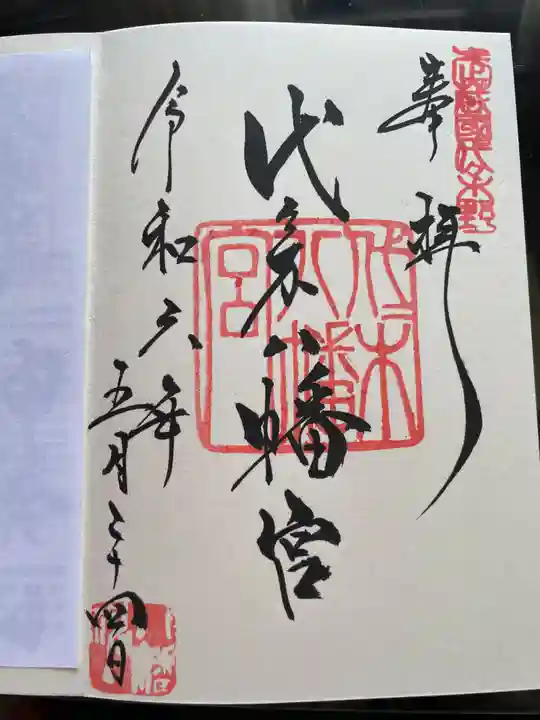 武蔵國代々木野
奉拝
代々木八幡宮
代々木八幡宮
令和六年
五月二十四日